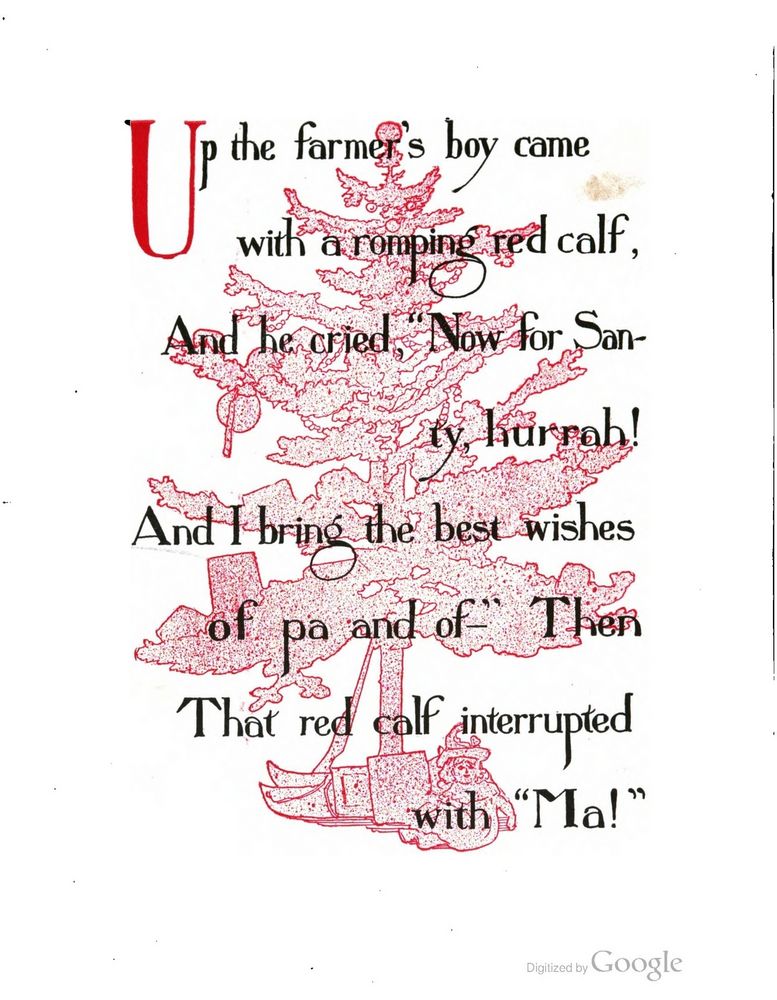 Up the farmer's boy came
with a romping red calf,
And he cried, “Now for San-
ty, hurrah!
And I bring the best wishes
of pa and of—” Then
That red calf interrupted
with “Ma!”
Digitized by Google